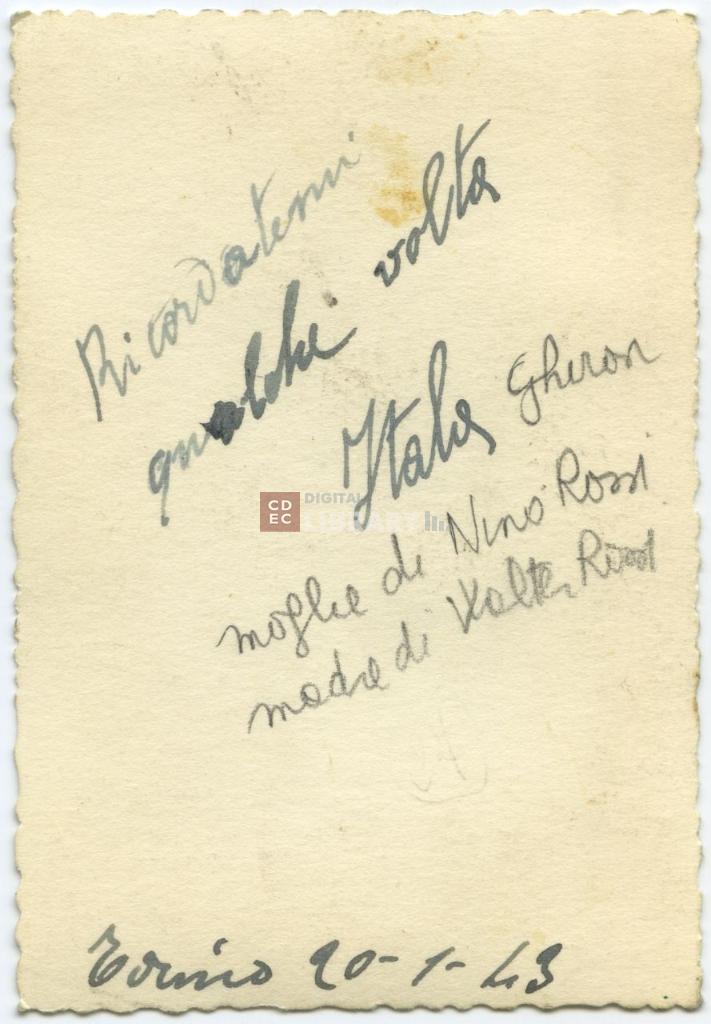 Ricordatemi
qualche volta
Itala Ghiron
CDEC DIGITAL LIBRARY
moglie di Nino Rossi
madre di Valter Rossi
Torino 20-1-43